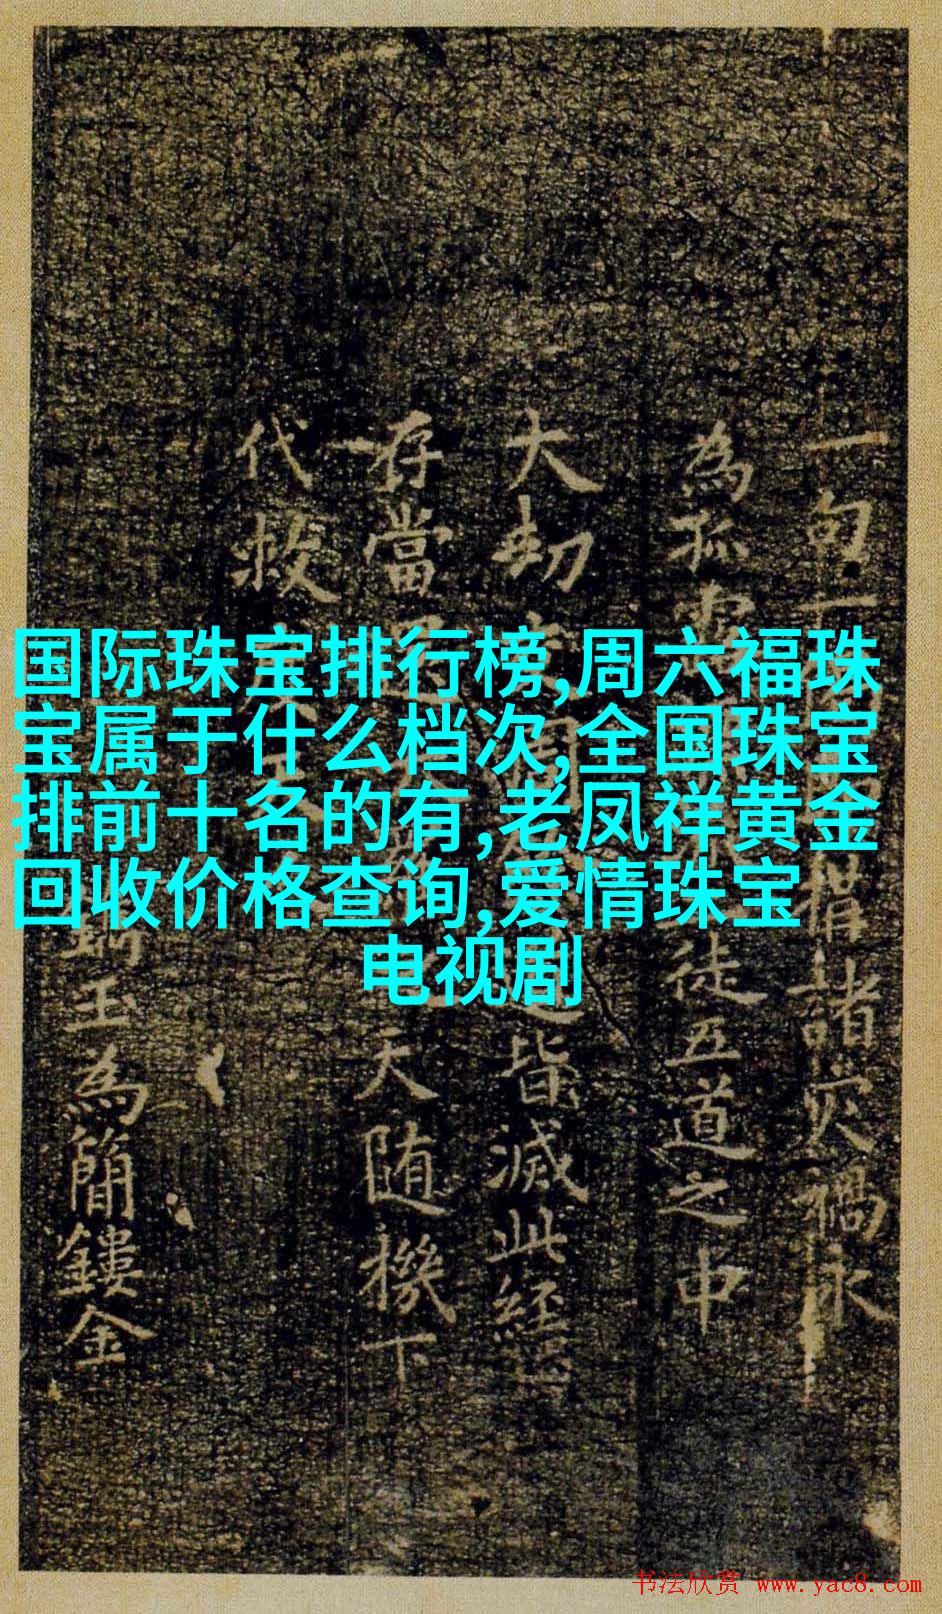 国际珠宝排行榜,周六福珠
宝属于什么档次,全国珠宝
排前十名的有,老凤祥黄金
回收价格查询,爱情珠宝
电视剧
一句一
揩諸災禍永
為孤
徒五道之中
大劫
皆滅此經
存當
天随機下
代
玉為簡鏤金
书法欣赏 www.yac8.com